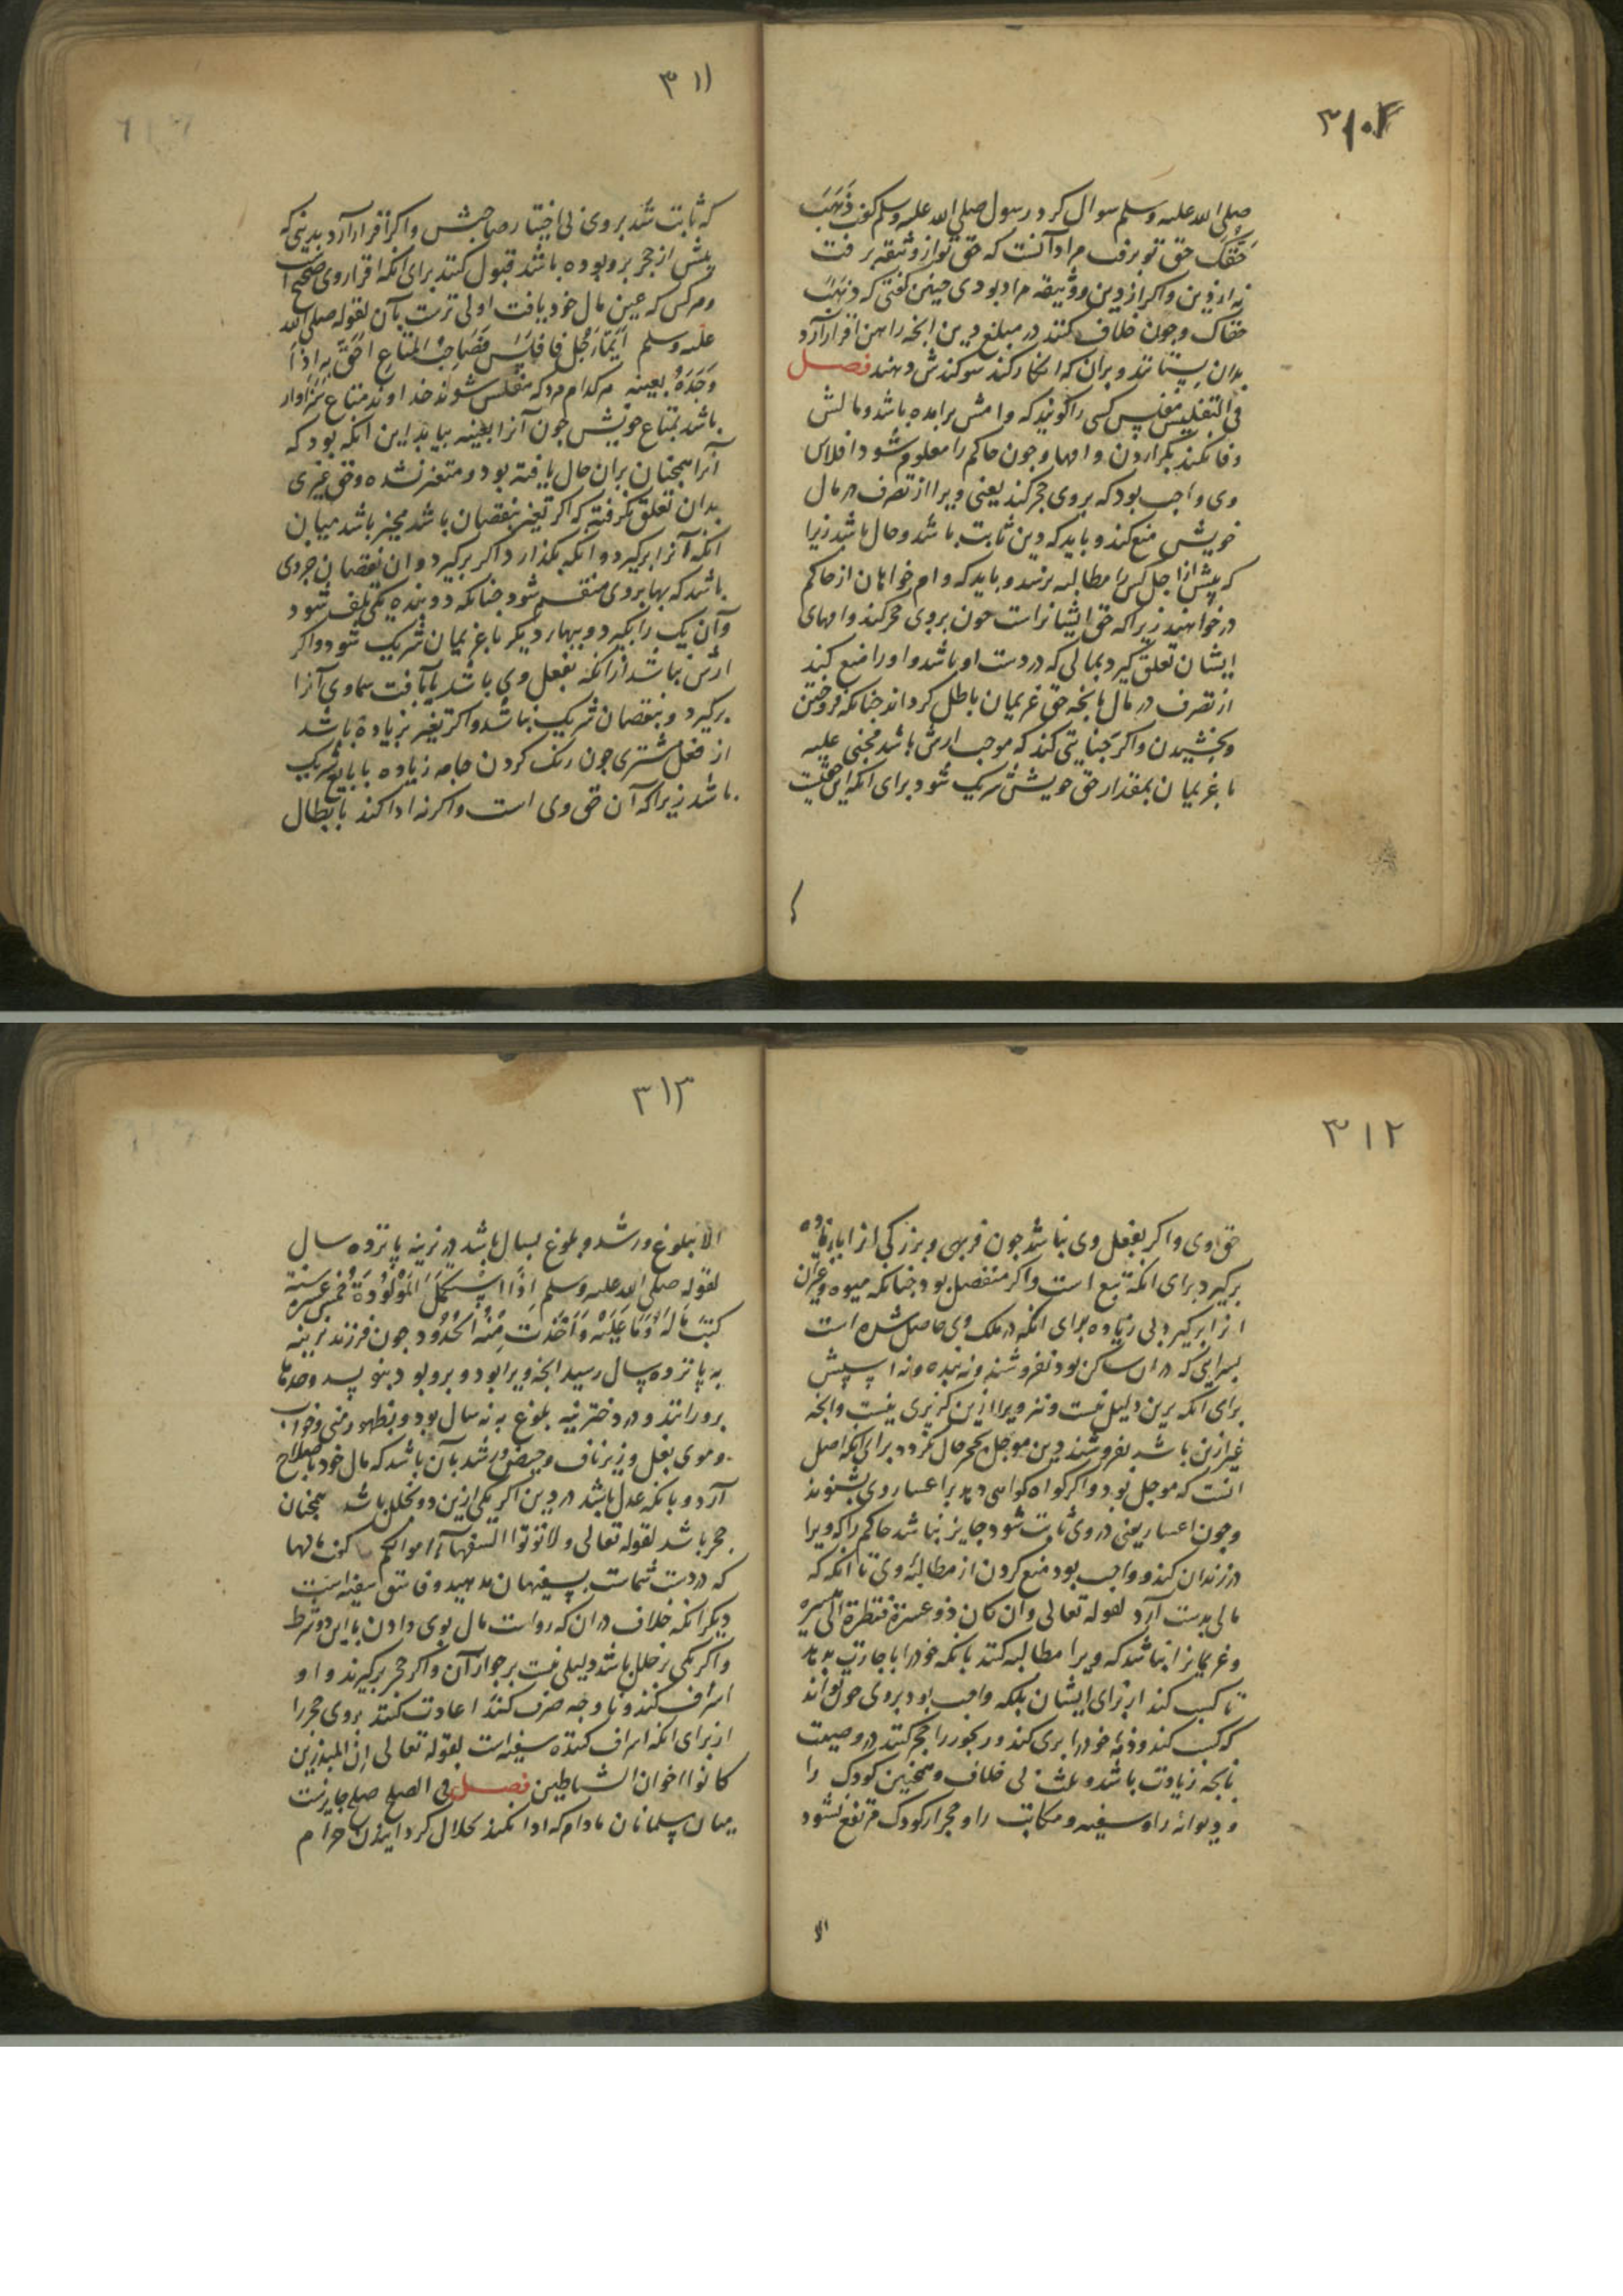 ۳۱۰
صلی الله علیه وسلم سوال کرد رسول صلی الله علیه وسلم گفت ذَهَبَ
حَقُّکَ حق تو برفت مراد آنست که حق تو از وثیقه برفت
نه از دین واکر از دین و وثیقه مراد بودی چنین گفتی که ذهبَ
حقاک وچون خلاف کنند در مبلغ دین انچه راهن اقرار آرد
بدان بستانند و بران که انکار کند سوکندش دهند فصل
فی التفلیس مفلس کسی را کویند که وامش برآمده باشد و مالش
وفا نکند بگزاردن وامها وچون حاکم را معلوم شود افلاس
وی واجب بود که بر وی حجر کند یعنی ویرا از تصرف در مال
خویش منع کند و باید که دین ثابت باشد و حال باشد زیرا
که پیش از اجل کس را مطالبه نرسد و باید که وام خواهان از حاکم
درخواهند زیرا که حق ایشانراست چون بر وی حجر کند وامهای
ایشان تعلق کیرد بمالی که در دست او باشد و او را منع کند
از تصرف در مال بانچه حق غریمان باطل کرداند چنانکه فروختن
وبخشیدن واکر جنایتی کند که موجب ارش باشد مجنی علیه
با غریمان بمقدار حق خویش شریک شود برای انکه این حقیست
۳۱۱
که ثابت شد بر وی بی اختیار صاحبش واکر اقرار آرد بدینی که
پیش از حجر برو بوده باشد قبول کنند برای انکه اقرار وی صحیح است
وهرکس که عین مال خود یافت اولی ترست بآن لقوله صلی الله
علیه وسلم اَیّما رَجُل فافلس فصَاحِبُ المتاعِ اَحَقُّ بهِ اِذَا
وَجَدَهُ بعینه هرکدام مرد که مفلس شود خداوند متاع سزاوار
باشد بمتاع خویش چون آنرا بعینه بیابد این انکه بود که
آنرا همچنان بران حال یافته بود و متغیر نشده و حق غیری
بدان تعلق نکرفته که اکر تغیر بنقصان باشد مخیر باشد میان
انکه آنرا برکیرد و انکه بکذارد اکر برکیرد و ان نقصان جزوی
باشد که بها بروی منقسم شود چنانکه دو بنده یکی تلف شود
وآن یک را بکیرد و ببهاء دیکر با غریمان شریک شود واکر
ارش نباشد از انکه بفعل وی باشد یا بآفت سماوی آنرا
برکیرد و بنقصان شریک نباشد واکر تغیر بزیادة باشد
از فعل مشتری چون رنک کردن جامه زیاده با بایع شریک
باشد زیرا که آن حق وی است واکر نه ادا کند بابطال
۳۱۲
حق وی واکر بفعل وی نباشد چون فربهی وبزرکی انرا بازیاده
برکیرد برای انکه تبع است واکر منفصل بود چنانکه میوه وغیر آن
انرا برکیرد بی زیاده برای انکه در ملک وی حاصل شده است
سرایی که در ان ساکن بود نفروشند و نه بنده و نه اسبش
برای انکه برین دلیل نیست و نیز ویرا ازین کزیری نیست وانچه
غیر ازین باشد بفروشند دین موجل بحجر حال نکردد برای انکه اصل
انست که موجل بود واکر کواه کواهی دهد بر اعسار وی بشنوند
وچون اعسار یعنی در وی ثابت شود جایز نباشد حاکم را که ویرا
در زندان کند و واجب بود منع کردن از مطالبۀ وی تا انکه که
مالی بدست آرد لقوله تعالی وان کان ذو عسرة فنظرة الی میسرة
وغریمانرا نباشد که ویرا مطالبه کنند بانکه خود را باجارت بدهد
تا کسب کند از برای ایشان بلکه واجب بود بروی چون تواند
که کسب کند و ذمۀ خود را بری کند و رنجور را حجر کنند در وصیت
بانچه زیادت باشد بر ثلث بی خلاف وهمچنین کودک را
ودیوانه را و سفیه و مکاتب را و حجر از کودک مرتفع نشود
الا
۳۱۳
الا ببلوغ ورشد و بلوغ بسال باشد در نرینه پانزده سال
لقوله صلی الله علیه وسلم اِذَا اسْتکمَلَ المَوْلُودُ خمسَ عشرة سنة
کتبَ مَا لَهُ وَمَا عَلَیه وَاُخِذَت مِنْه الحُدُود چون فرزند نرینه
به پانزده سال رسید انچه ویرا بود و برو بود بنویسند وحدها
برو رانند و در دخترینه بلوغ به نه سال بود و بظهور منی و خواب
وموی بغل و زیر ناف وحیض ورشد بآن باشد که مال خود باصلاح
آرد و بانکه عدل باشد در دین اکر یکی ازین دو مختل باشد همچنان
حجر باشد لقوله تعالی ولا تؤتوا السفهاء اموالکم کفت مالها
که در دست شماست بسفیهان مدهید و فاسق سفیه است
دیکر انکه خلاف در ان که رواست مال بوی دادن با این دو شرط
واکر یکی بر خلل باشد دلیلی نیست بر جواز آن واکر حجر برکیرند و او
اسراف کند و نا وجه صرف کند اعادت کنند بر وی حجر را
از برای انکه اسراف کننده سفیه است لقوله تعالی ان المبذرین
کانوا اخوان الشیاطین فصل فی الصلح صلح جایزست
میان مسلمانان مادام که ادا نکند بحلال کردانیدن حرام